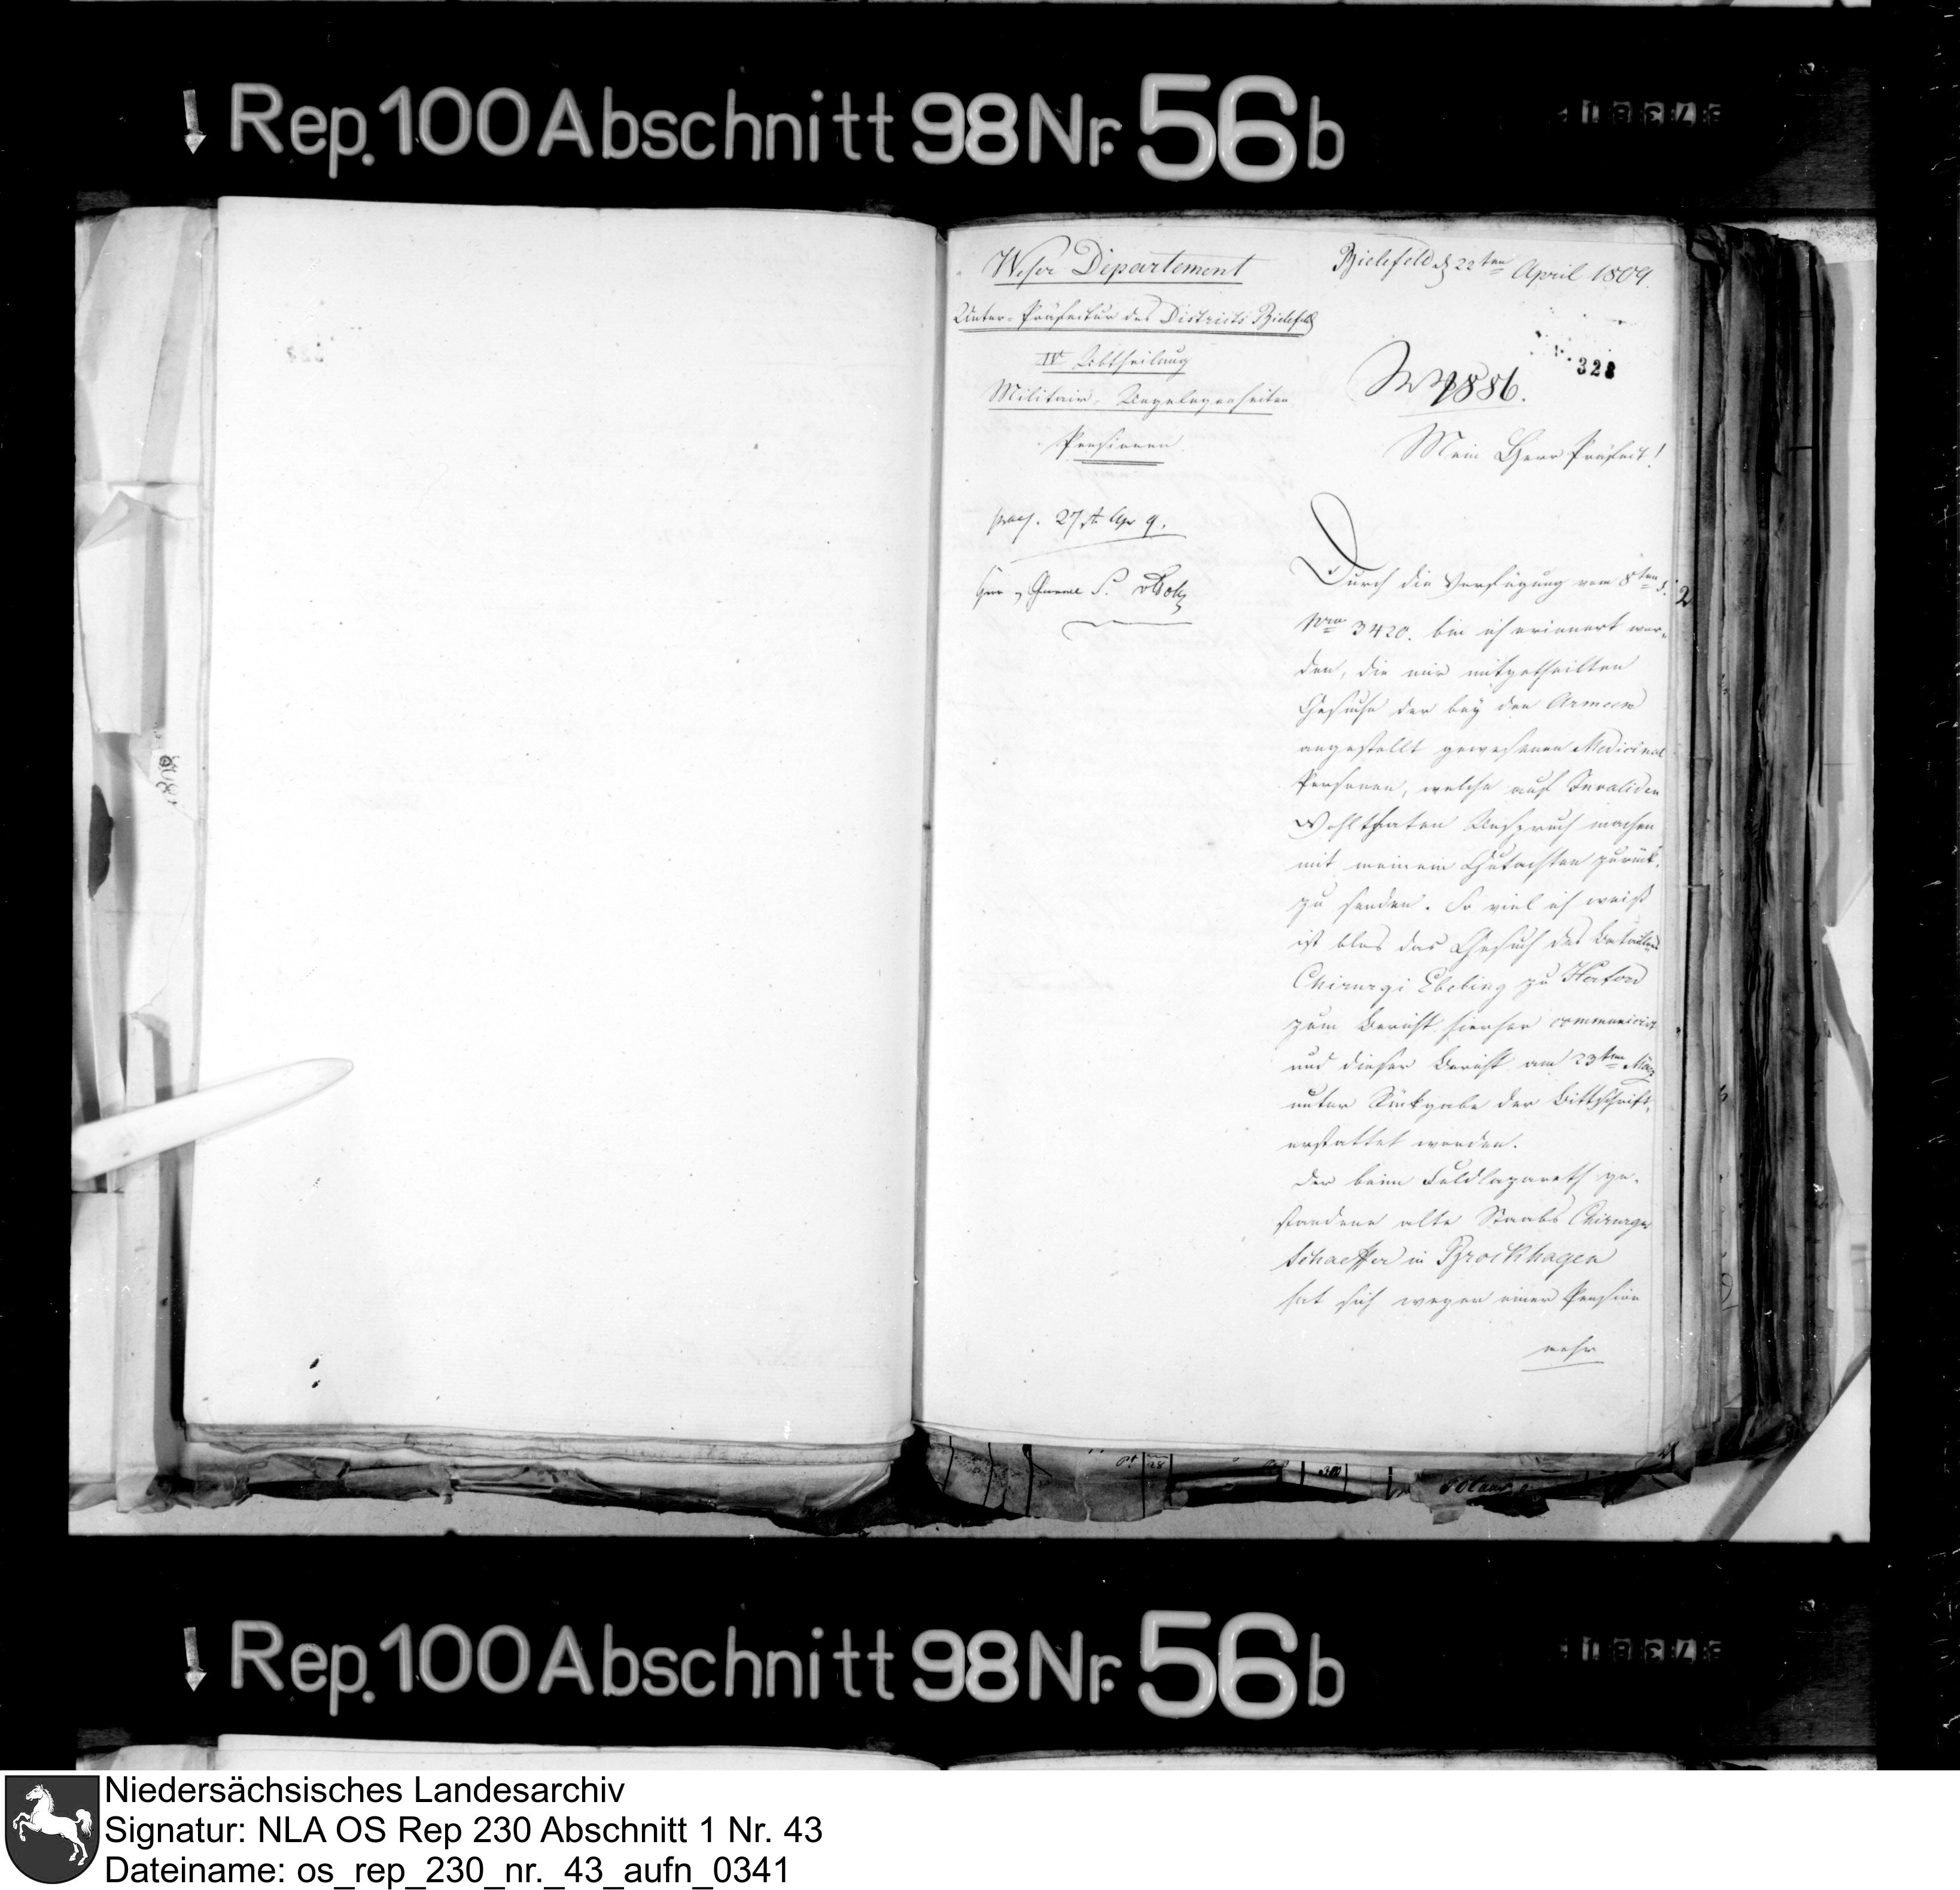 Rep. 100 Abschnitt 98 Nr. 56 b
Weser Departement
Unter-Präfectur des Districts Bielefeld
IV Abtheilung
Militair-Angelegenheiten
Pensionen
praes. 27t Apr 9.
Bielefeld d 22ten April 1809.
328
Nro 1886.
Mein Herr Präfect!
Durch die Verfügung vom 8ten
Nro 3420. bin ich erinnert wor-
den, die mir mitgetheilten
Gesuche der bey den Armeen
angestellt gewesenen Medicinal
Personen, welche auf Invaliden
Wohlthaten Anspruch machen
mit meinem Gutachten zurück-
zu senden. So viel ich weiß
ist blos das Gesuch des Bataillons
Chirurgi Ebeling zu Herford
zum Bericht hierher communicirt
und dieser Bericht am 23ten März
unter Rückgabe der Bittschrift,
erstattet worden.
Der beim Feldlazareth ge-
standene alte Staabs Chirurgus
Schaeffer in Brockhagen
hat sich wegen einer Pension
mehr
Rep. 100 Abschnitt 98 Nr. 56 b
Niedersächsisches Landesarchiv
Signatur: NLA OS Rep 230 Abschnitt 1 Nr. 43
Dateiname: os_rep_230_nr._43_aufn_0341